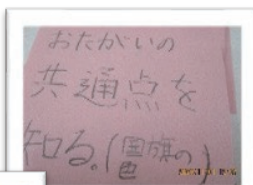 おたがいの
共通点を
知る。(国旗の色)